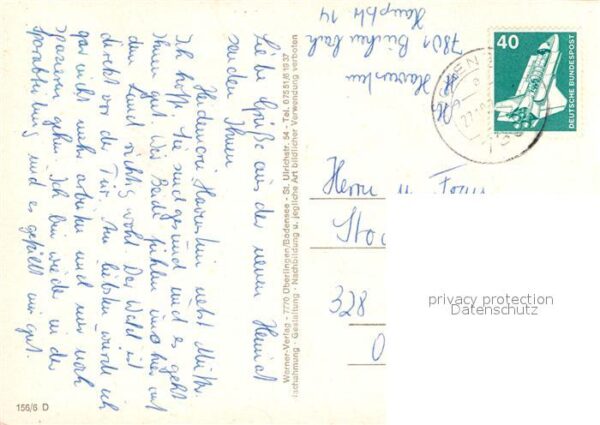 Liebe Grüße aus der neuen Heimat
senden Ihnen
Heidemarie Havenstein nebst Mutter.
Ich hoffe Sie sind gesund und es geht
Ihnen gut. Wir Beide fühlen uns hier auf
dem Land richtig wohl. Der Wald ist
direkt vor der Tür. Am liebsten würde ich
gar nicht mehr arbeiten und nur noch
spazieren gehen. Ich bin wieder in der
und es gefällt mir gut.
H. Havenstein
7801 Buchenbach
Hauptstr 14
40
DEUTSCHE BUNDESPOST
Werner-Verlag · 7770 Überlingen/Bodensee · St. Ulrichstr. 54 · Tel. 07551/61937
Nachahmung · Gestaltung · Nachbildung u. jegliche Art bildlicher Verwendung verboten
Herrn
328
privacy protection
Datenschutz
156/6 D